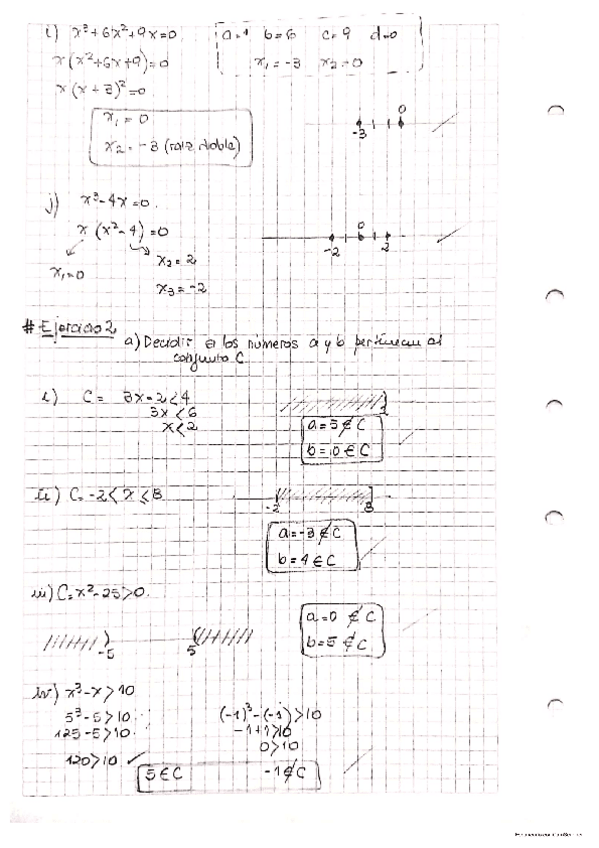 i) x³+6x²+9x=0
a=1 b=6 c=9 d=0
x(x²+6x+9)=0
x₁=-3 x₂=0
x(x+3)²=0
x₁=0
x₂=-3 (raiz doble)
-3 0
j) x³-4x=0
x(x²-4)=0
x₁=0
x₂=2
x₃=-2
-2 0 2
# Ejercicio 2
a) Decidir si los números a y b pertenecen al
conjunto C
i) C= 3x-2<4
3x<6
x<2
2
a=5∉C
b=0∈C
ii) C=-2<x≤8
-2 8
a=-3∉C
b=4∈C
iii) C=x²-25>0
-5 5
a=0∉C
b=5∉C
iv) x³-x>10
5³-5>10
125-5>10
120>10 ✓
(-1)³-(-1)>10
-1+1>10
0>10
5∈C -1∉C